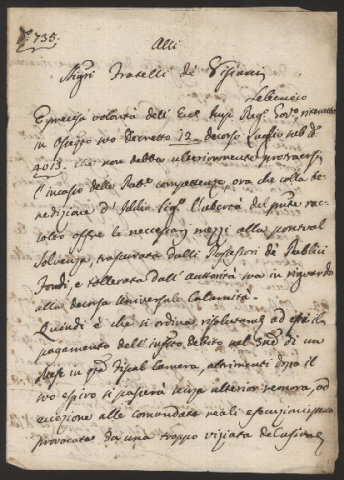 N.º 735.
Alli
Sig.ri Fratelli de Visiani
Sebenico
Espressa volontà dell' Ecc.
in Ossequio suo Decreto 12 decorso Luglio sub N.º
4013. che non debba ulteriormente protraersi
l'incasso delle competenze, ora che colla be-
nedizione d' Iddio Sig.r l'ubertà del rac-
colto offre li necessarj mezzi alla pontual
solvenza, trascurata dalli Possessori de Publici
Fondi, e tollerata dall' autorità sua in riguardo
alla decorsa universale Calamità.
Quindi è che si ordina risolutamente ad essi il
pagamento dell' infrascritto Debito nel di un
Mese in Fiscal Camera, altrimenti dopo il
suo espiro si passerà senza ulterior remora, od
eccezione alle comandate reali esecuzioni
provocate da una troppo viziata